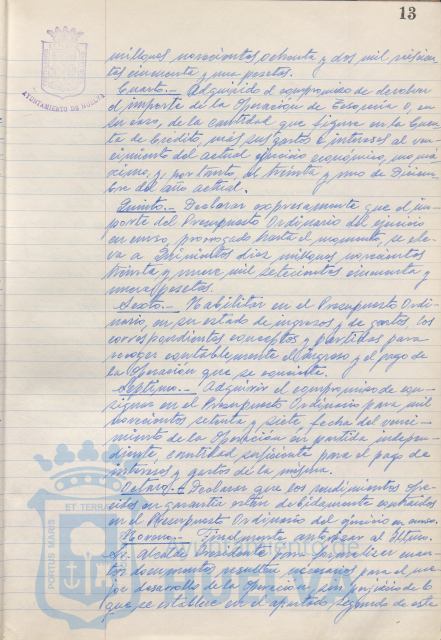 13
AYUNTAMIENTO DE HUELVA
millones novecientas ochenta y dos mil seiscien
tas cincuenta y una pesetas.
Cuarto.- Adquirido el compromiso de devolver
el importe de la Operación de Tesorería o, en
su caso, de la cantidad que figure en la Cuen
ta de Crédito, más sus gastos e intereses al ven
cimiento del actual ejercicio económico, como má
ximo, y por tanto, el treinta y uno de Diciem
bre del año actual.
Quinto.- Declarar expresamente que el im
porte del Presupuesto Ordinario del ejercicio
en curso, prorrogado hasta el momento, se ele
va a Quinientos diez millones novecientas
treinta y nueve mil setecientas cincuenta y
nueve pesetas.
Sexto.- Habilitar en el Presupuesto Ordi
nario, en su estado de ingresos y de gastos, los
correspondientes conceptos y partidas para
recoger contablemente el ingreso y el pago de
la Operación que se concierte.
Septimo.- Adquirir el compromiso de con
signar en el Presupuesto Ordinario para mil
novecientos setenta y siete, fecha del venci
miento de la Operación en partida indepen
diente, cantidad suficiente para el pago de
intereses y gastos de la misma.
Octavo.- Declarar que los rendimientos ofre
cidos en garantía están debidamente contraidos
en el Presupuesto Ordinario del ejercicio en curso.
Noveno.- Finalmente, autorizar al Iltmo.
Sr. Alcalde Presidente para formalizar cuan
tos documentos resulten necesarios para el me
jor desarrollo de la Operación, sin perjuicio de lo
que se establece en el apartado Segundo de este
PORTUS MARIS
ET TERRAE
HUELVA